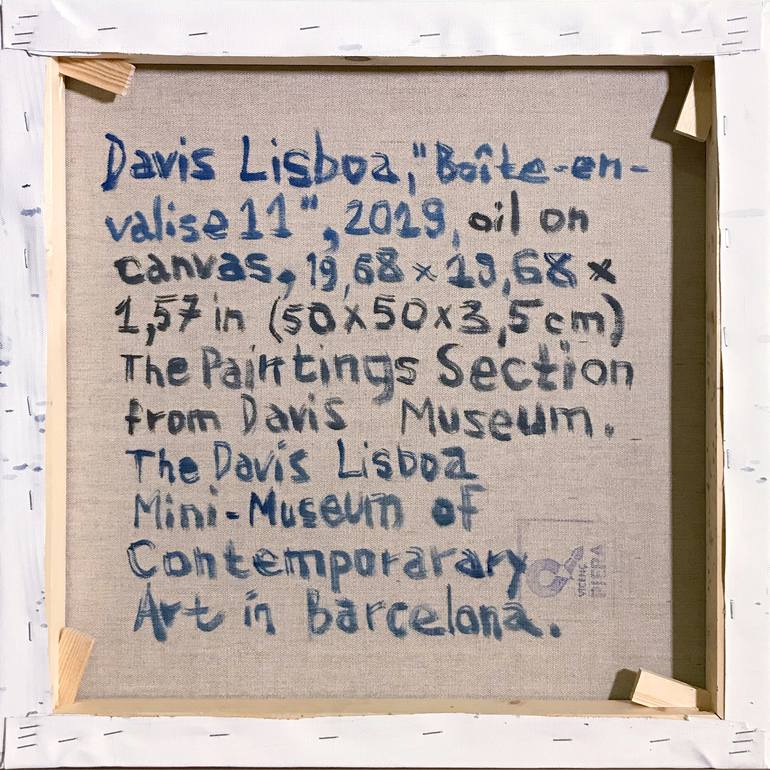 Davis Lisboa, "Boîte-en-
valise 11", 2019, oil on
canvas, 19,68 x 19,68 x
1,57 in (50x50x3,5cm)
The Paintings Section
from Davis Museum.
The Davis Lisboa
Mini-Museum of
Contemporarary
Art in Barcelona.
VICENÇ
PIERA